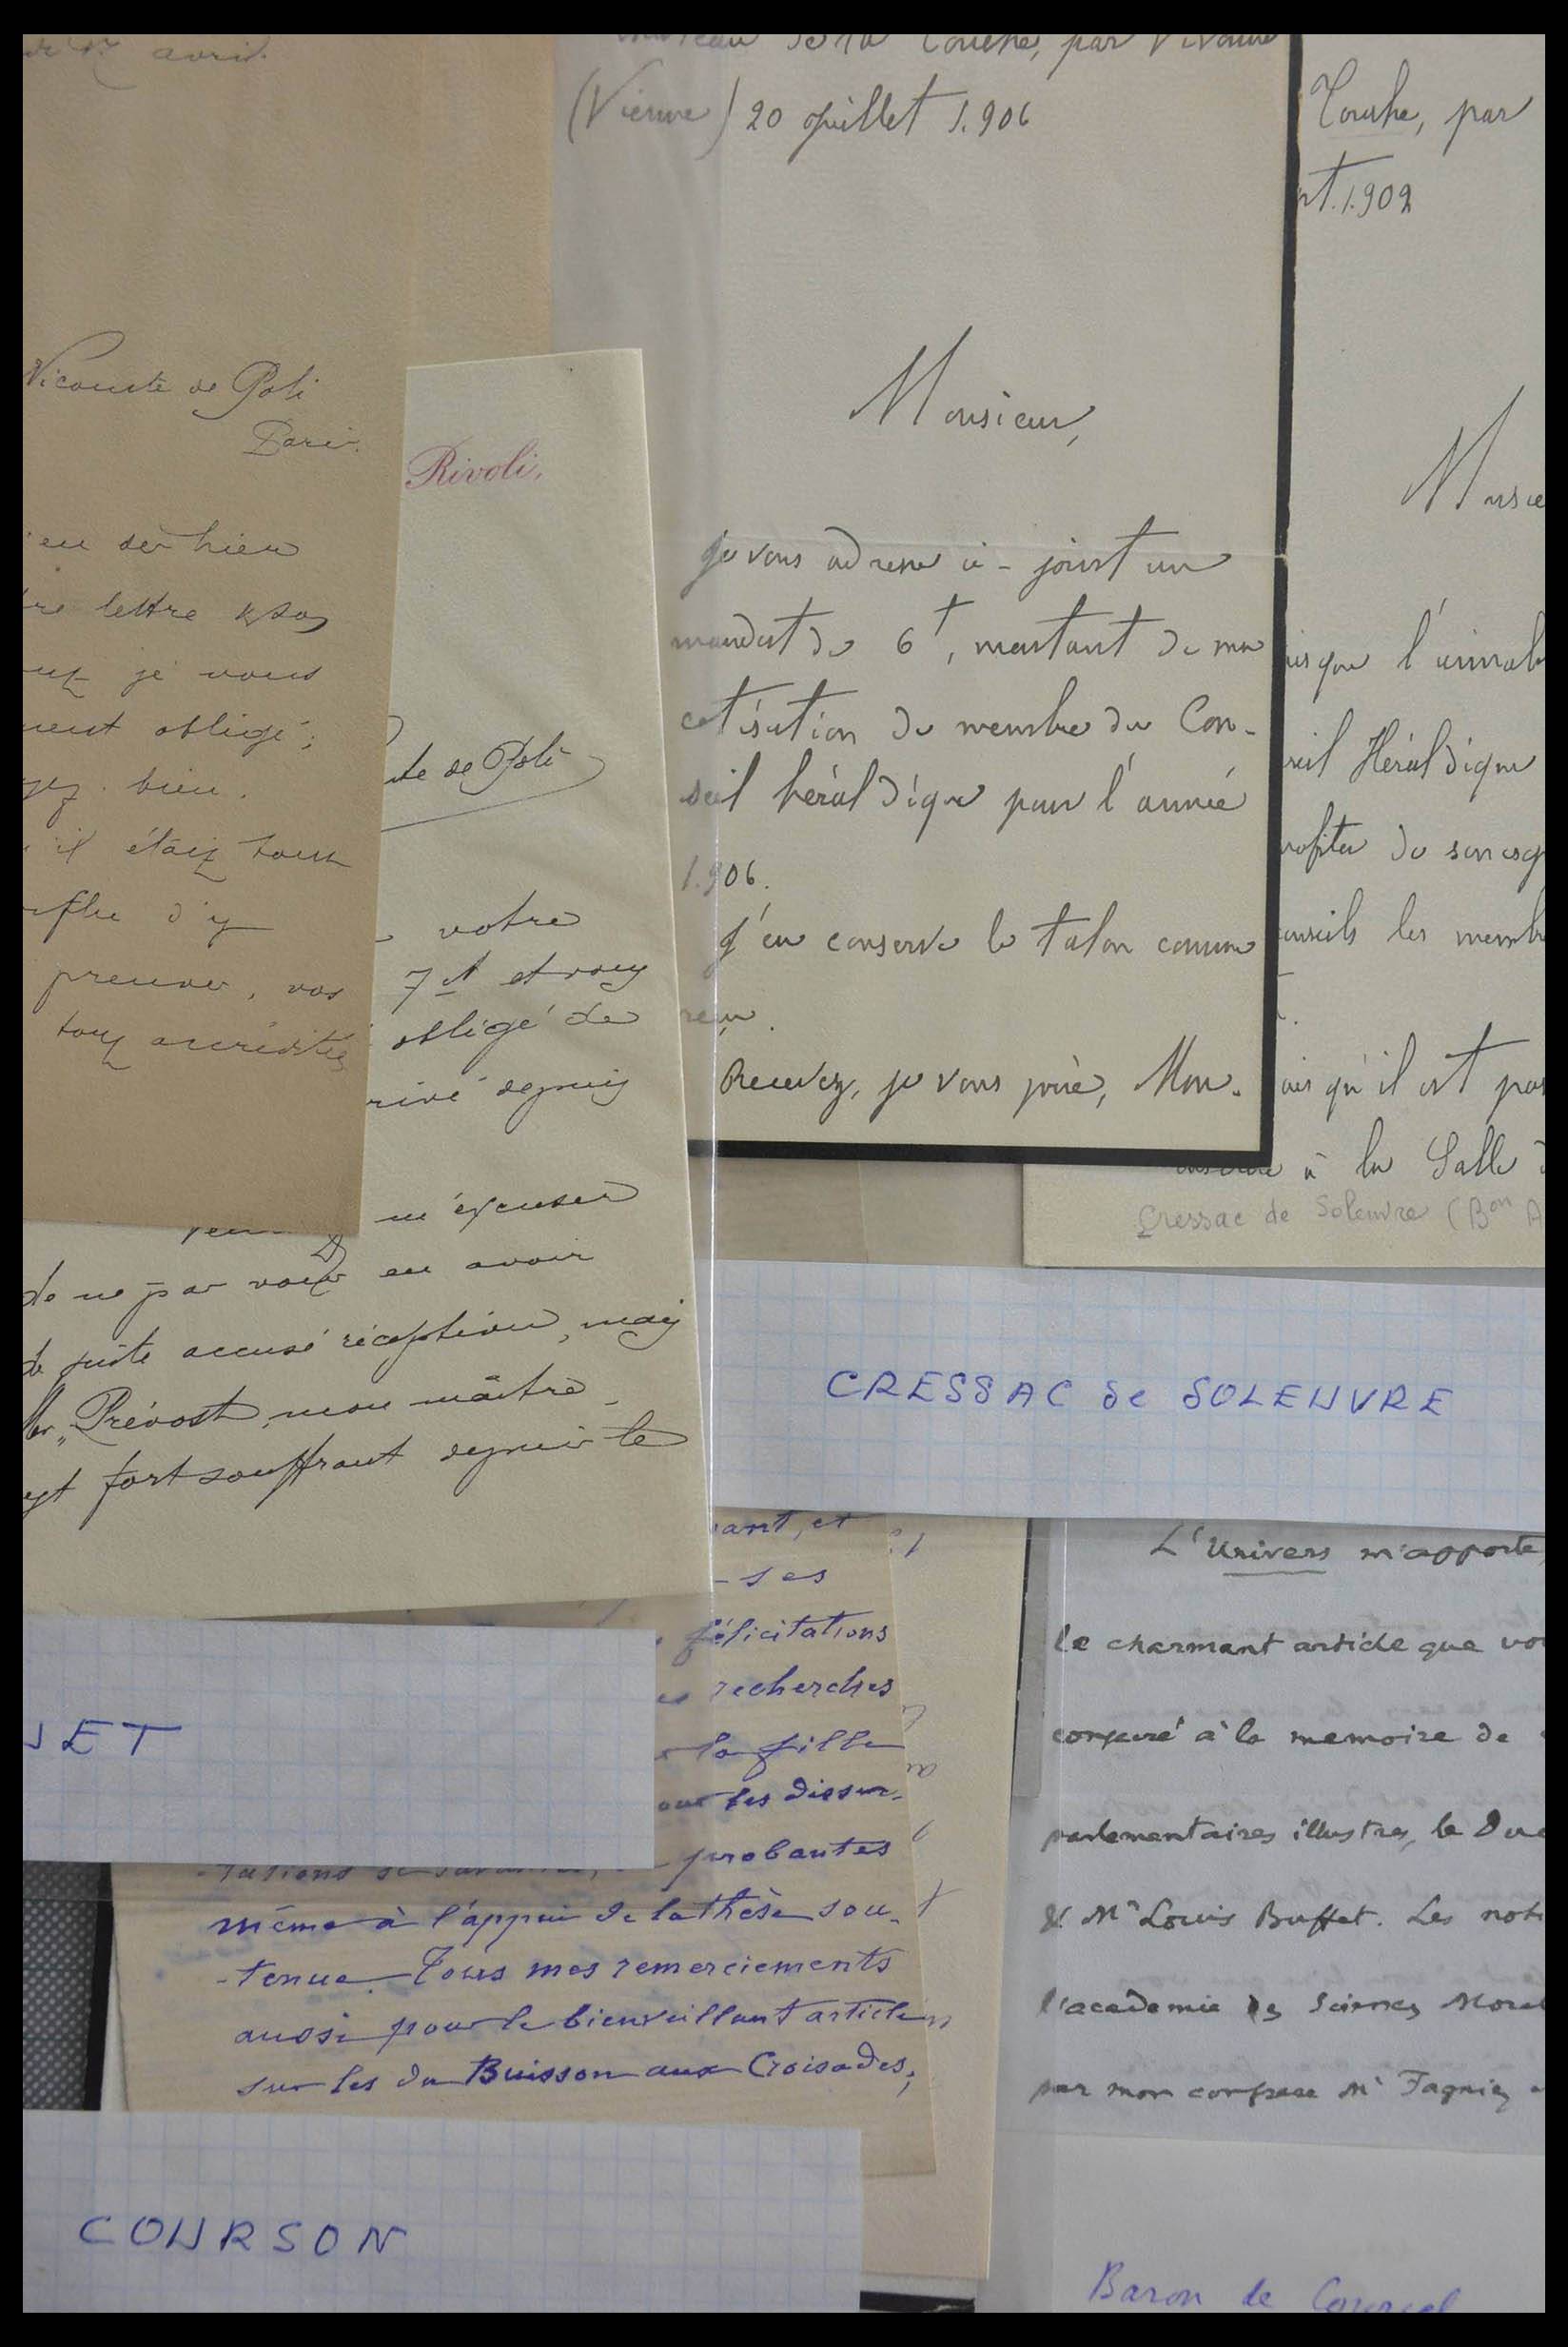 avril
Vicomte de Poli
Paris.
dès hier
lettre
je vous
obligé;
bien.
il était tout
d'y
preuves, vos
tout accrédités
Rivoli,
de Poli
votre
7 et et vous
obligé de
depuis
m'excuser
de ne pas vous en avoir
de suite accusé réception, mais
Prévost, mon maître
est fort souffrant depuis le
de la Touche, par Vivonne
(Vienne) 20 juillet 1.906
Monsieur,
Je vous adresse ci-joint un
mandat de 6f, montant de ma
cotisation de membre du Con-
seil héraldique pour l'année
1.906.
J'en conserve le talon comme
reçu.
Recevez, je vous prie, Mon-
Touche, par
1.902
l'aimab
Héraldique
profiter de son
conseils les memb
qu'il est pas
à la Salle
Cressac de Soleuvre (Bon A
CRESSAC de SOLEUVRE
JET
et
ses
félicitations
recherches
la fille
les disser-
tations probantes
même à l'appui de la thèse sou-
-tenue. Tous mes remerciements
aussi pour le bienveillant article
sur les du Buisson aux Croisades,
COURSON
L'Univers m'apporte
le charmant article que vou
consacré à la memoire de
parlementaires illustres, le Duc
& Mr Louis Buffet. Les noti
l'academie des Sciences Moral
par mon confrere Mr Fagniez
Baron de Courcel